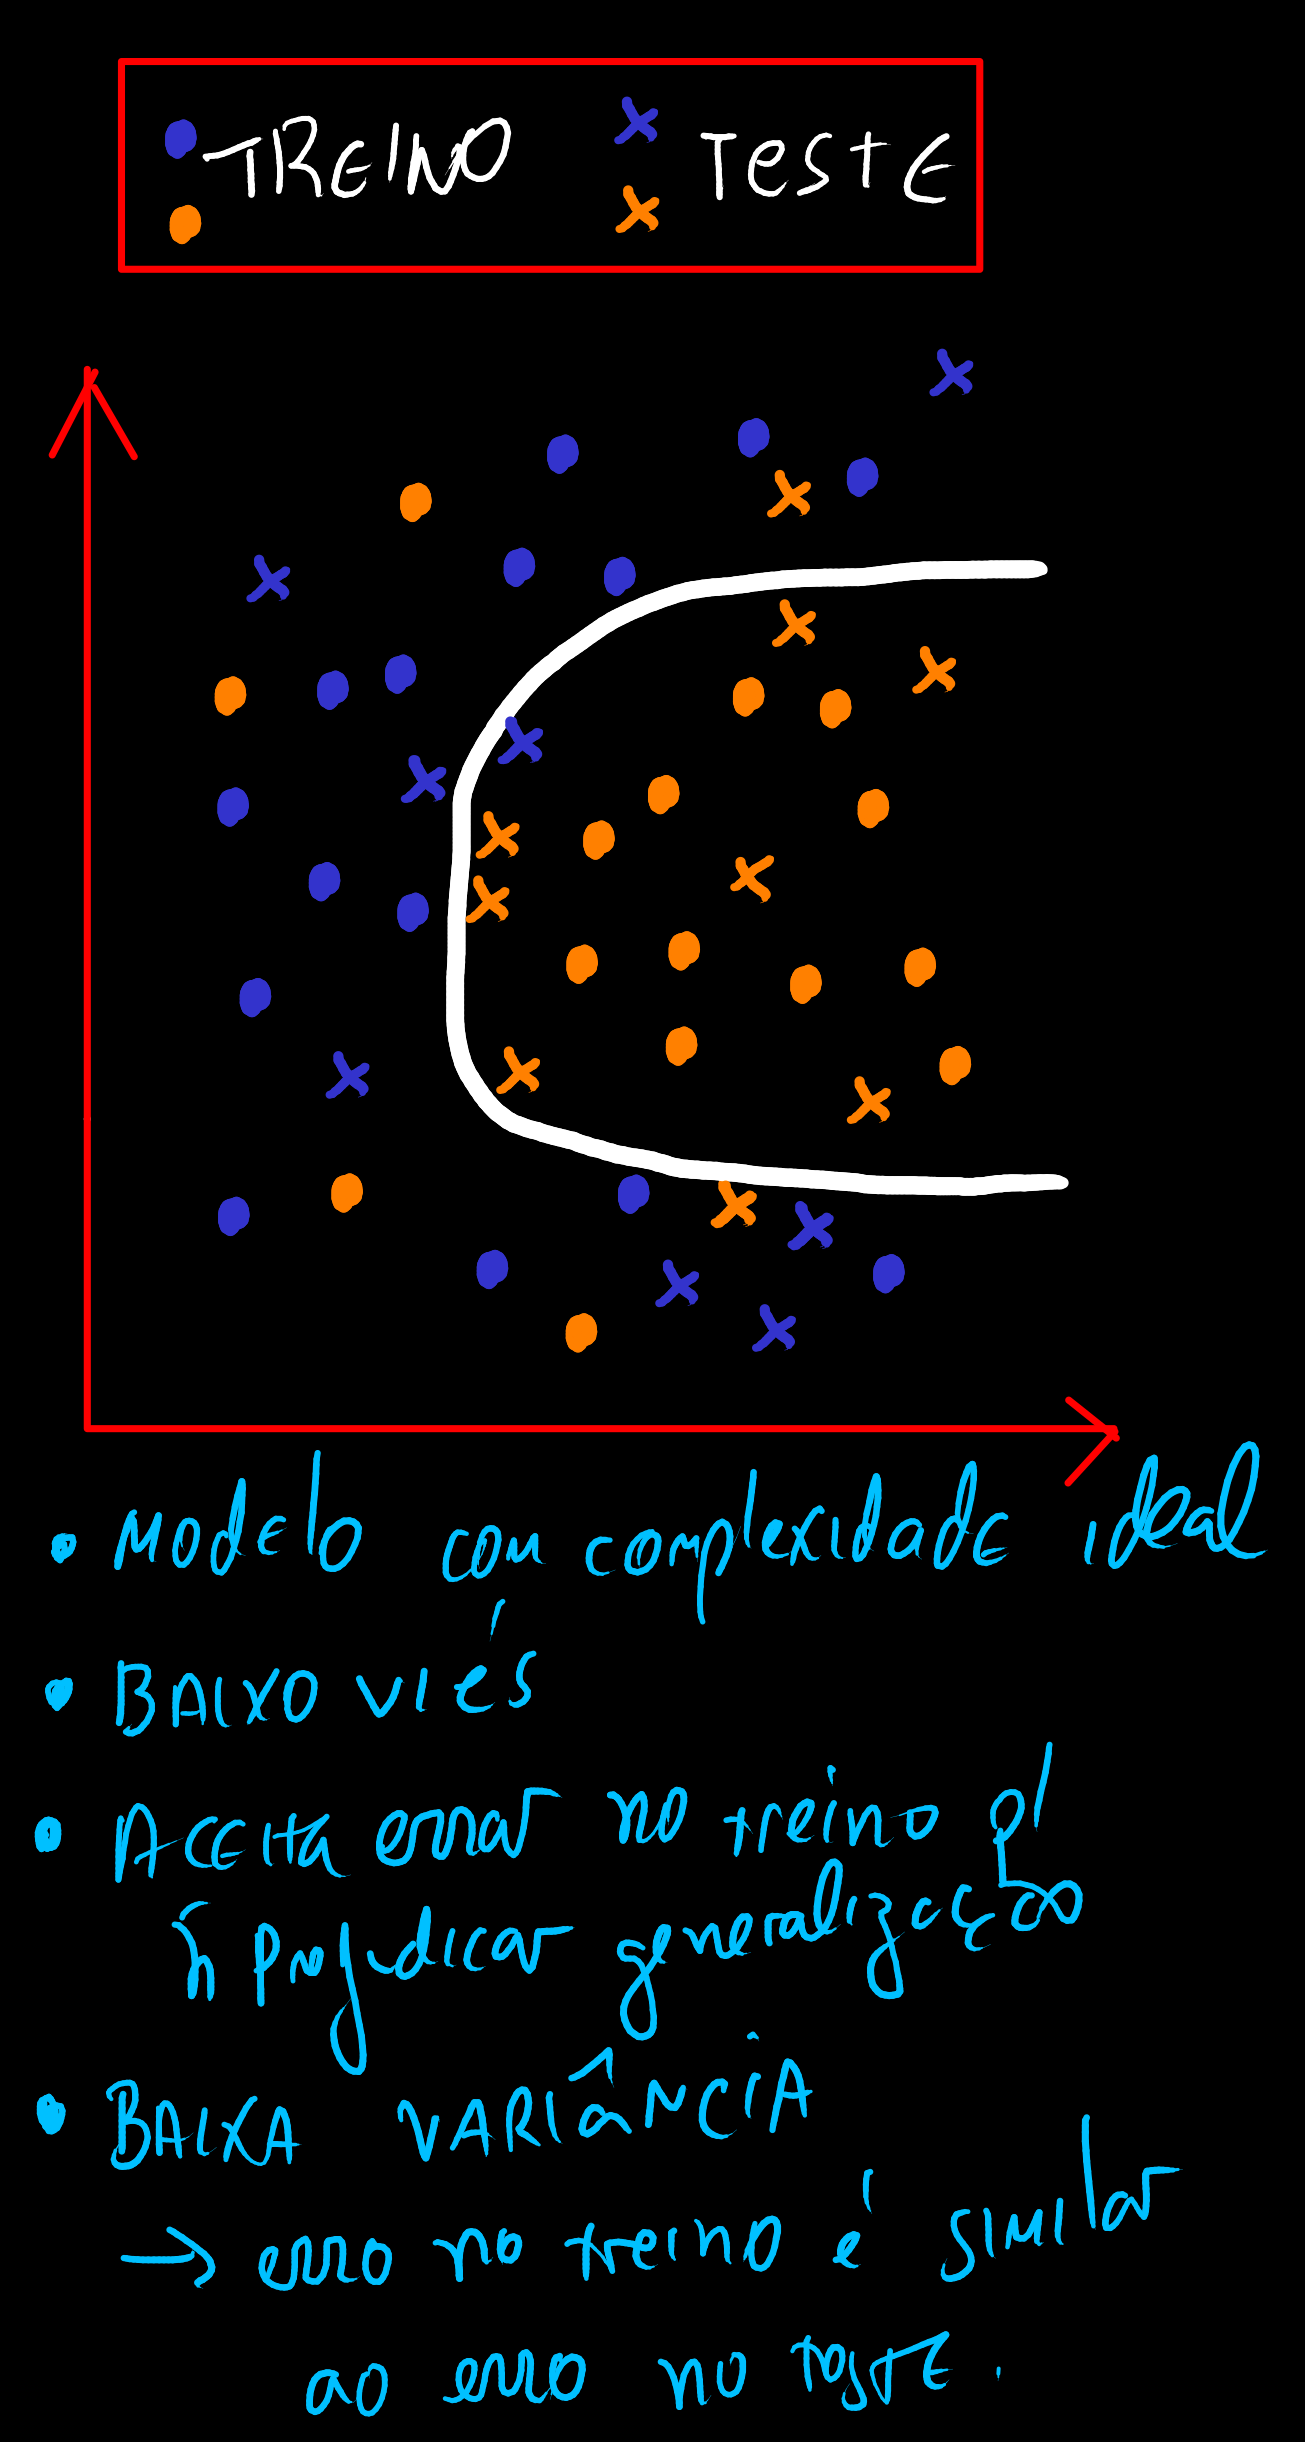 TREINO TESTE
• Modelo com complexidade ideal
• BAIXO viés
• ACEITA errar no treino p/
ñ prejudicar generalização
• BAIXA VARIÂNCIA
→ erro no treino é similar
ao erro no teste.